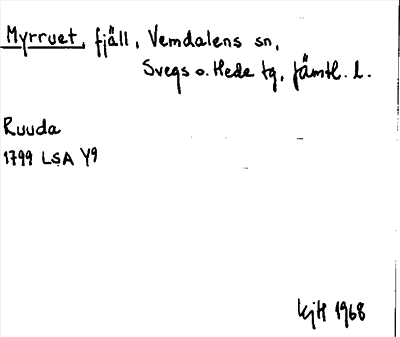 Myrruet, fjäll, Vemdalens sn,
Svegs o. Hede tg, Jämtl. l.
Ruuda
1799 LSA Y9
KjH 1968